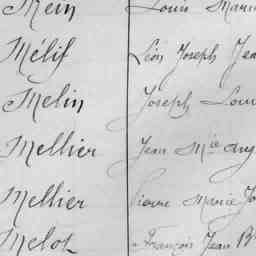 Mein Louis Marie
Mélif Léon Joseph Jea
Melin Joseph Loui
Mellier Jean Mie Aug
Mellier Pierre Marie Jo
Melot François Jean B